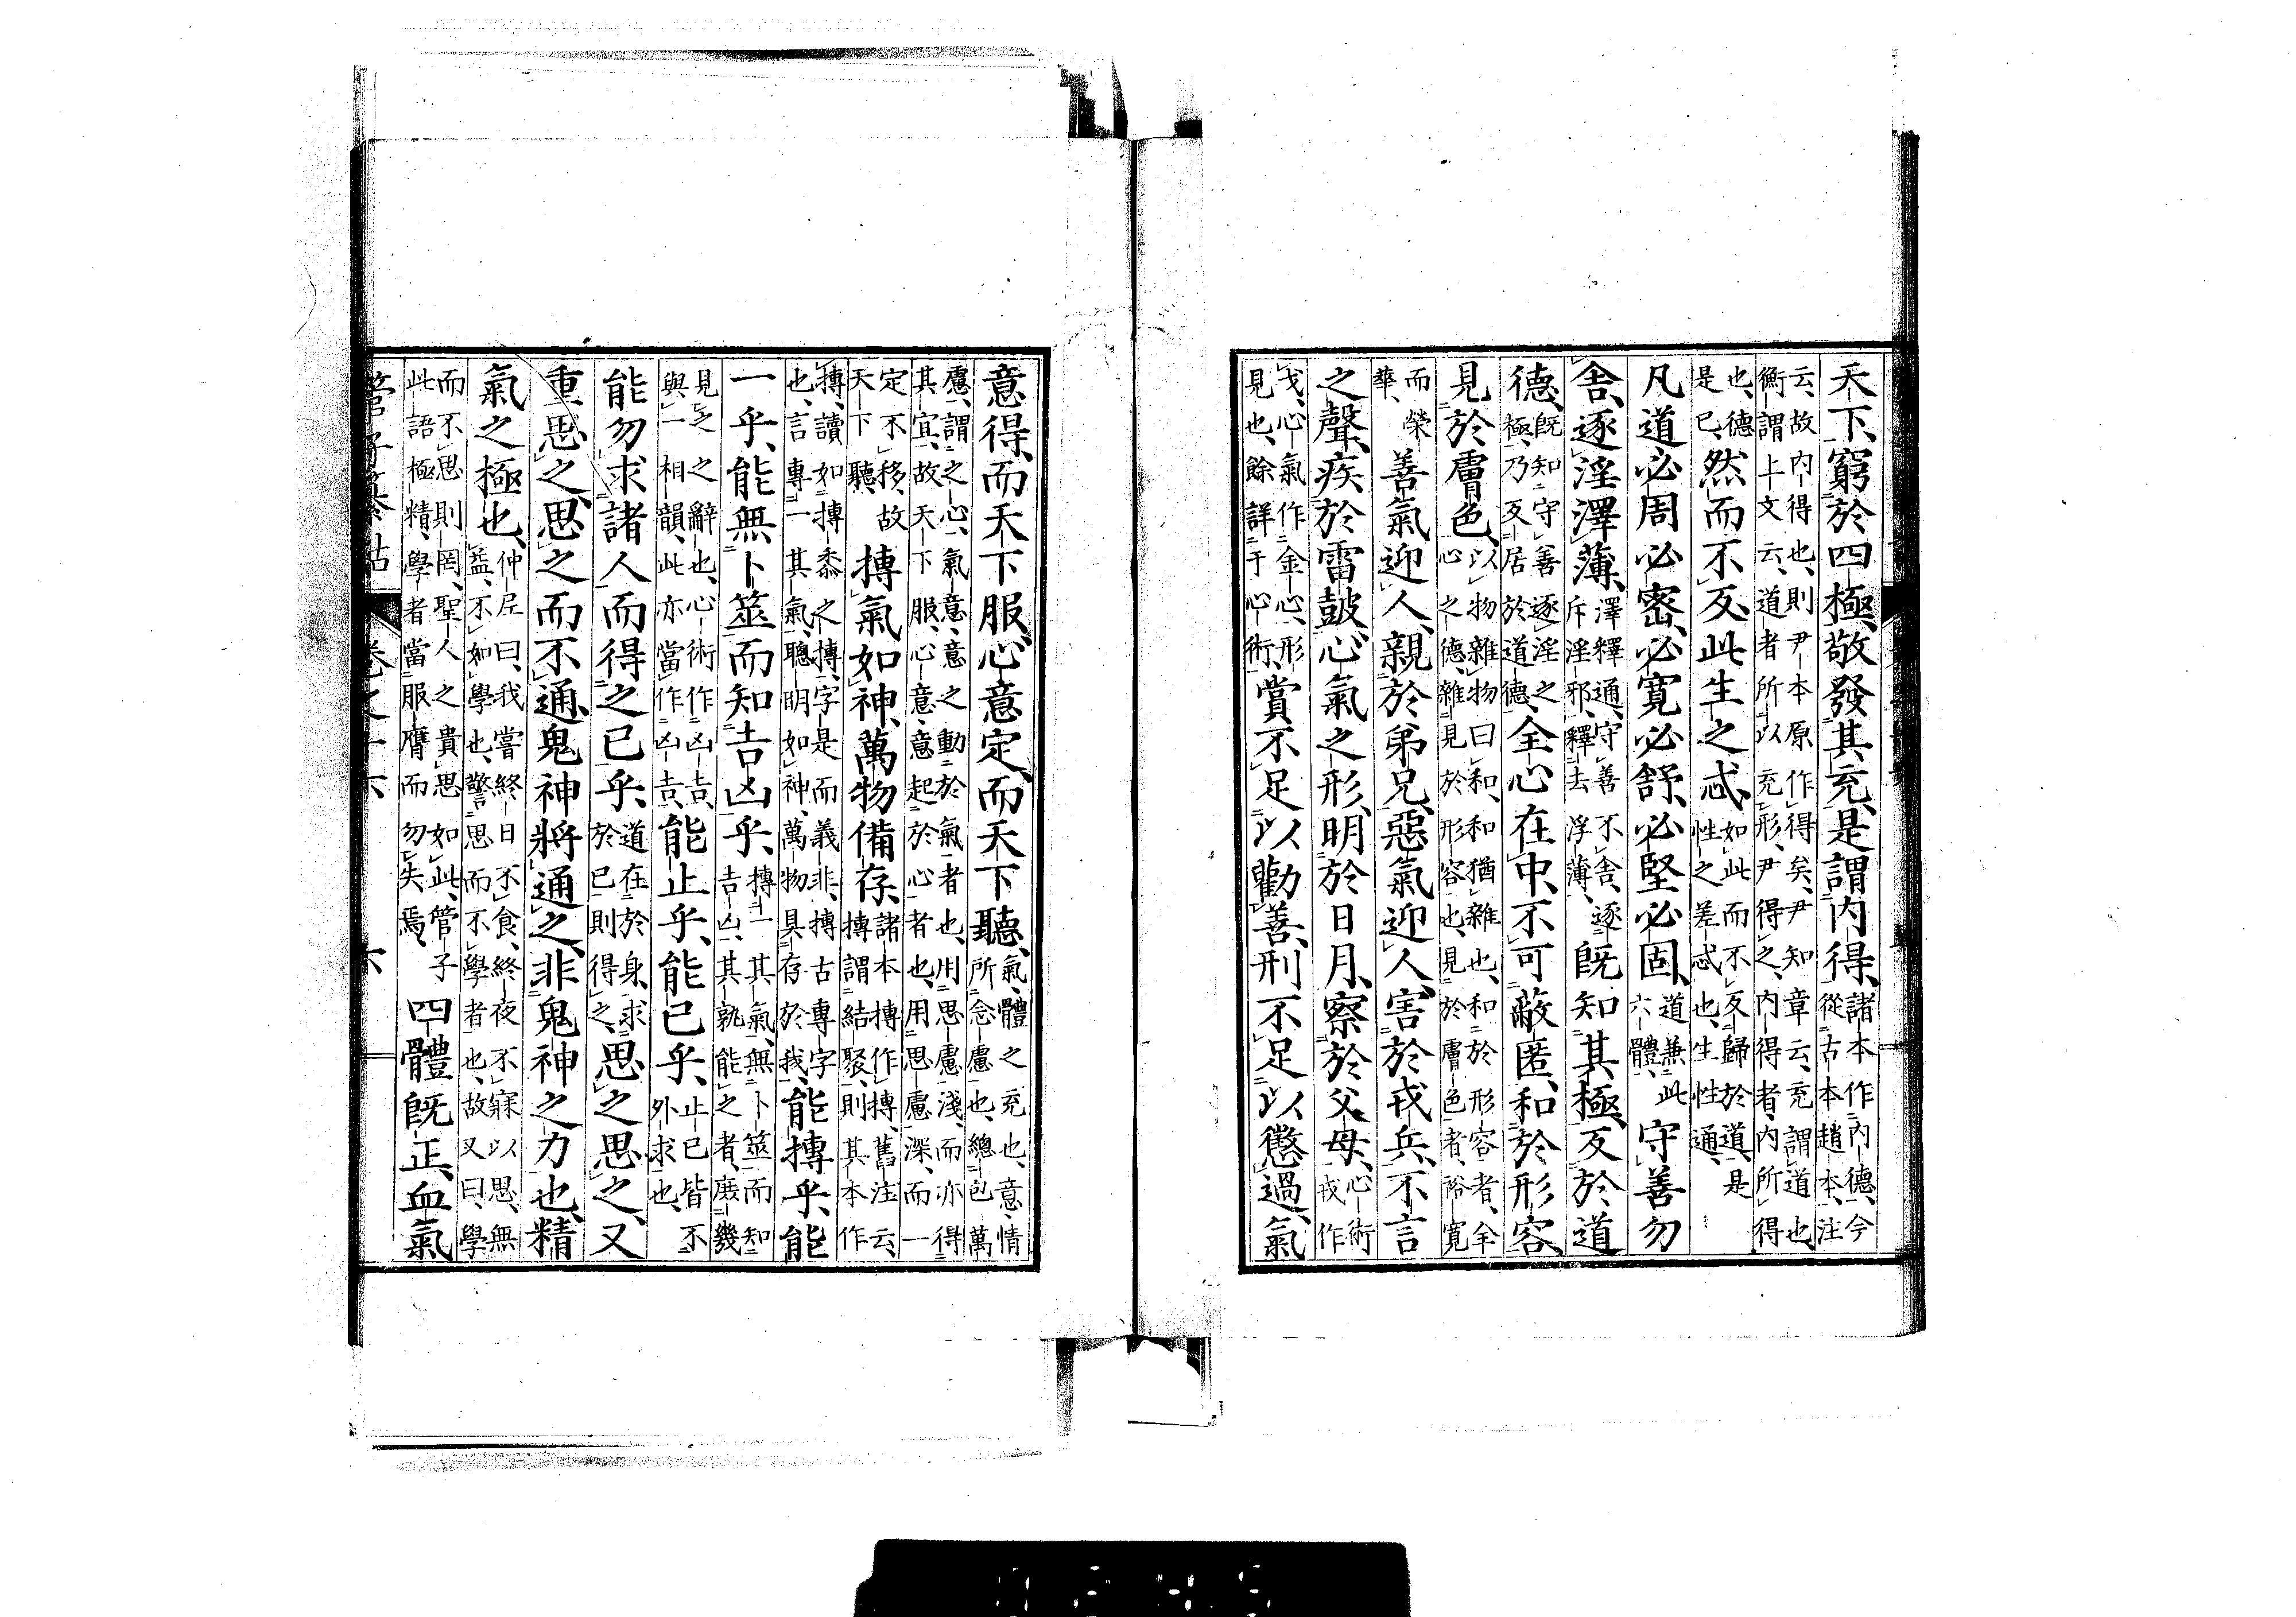 天下、窮於四極、敬發其充、是謂内得、諸本作内德、今從古本趙本、注
云、故内得也、則尹本原作得矣、尹知章云、充謂道也
衡謂上文云、道者所以充形、尹得之、内得者、内所得
也、德是已、然而不反、此生之忒、如此而不反歸於道、是性之差忒也、生性通、
凡道必周必密、必寬必舒、必堅必固、道兼此六體、守善勿
舍、逐淫澤薄、澤釋通、守善不舍、逐斥淫邪、釋去浮薄、既知其極、反於道
德、既知守善逐淫之極、乃反居於道德、全心在中、不可蔽匿、和於形容、
見於膚色、以物雜物曰和、和猶雜也、和於形容者、全心之德、雜見於形容也、見於膚色者、裕寬
而榮華、善氣迎人、親於弟兄、惡氣迎人、害於戎兵、不言
之聲、疾於雷鼓、心氣之形、明於日月、察於父母、心術戎作
戈、心氣作金心、形見也、餘詳于心術、賞不足以勸善、刑不足以懲過、氣
意得、而天下服、心意定、而天下聽、氣、體之充也、意、情所念慮也、總包萬
慮、謂之心、氣意、意之動於氣者也、用思慮淺、而亦得
其宜、故天下服、心意、意起於心者也、用思慮深、而一
定不移、故天下聽、摶氣如神、萬物備存、諸本摶作搏、舊注云、摶謂結聚、則其本作
摶、讀如摶黍之摶、字是而義非、摶古專字也、言專一其氣、聰明如神、萬物具存於我、能摶乎、能
一乎、能無卜筮而知吉凶乎、摶一其氣、無卜筮而知吉凶、其孰能之者、庶幾
見之之辭也、心術作凶吉、與一相韻、此亦當作凶吉、能止乎、能已乎、止已皆不外求也、
能勿求諸人而得之己乎、道在於身、求於己則得之、思之思之、又
重思之、思之而不通、鬼神將通之、非鬼神之力也、精
氣之極也、仲尼曰、我嘗終日不食、終夜不寐以思、無益、不如學也、警思而不學者也、故又曰、學
而不思則罔、聖人之貴思如此、管子此語極精、學者當服膺而勿失焉、四體既正、血氣
管子纂詁 卷之十六 六